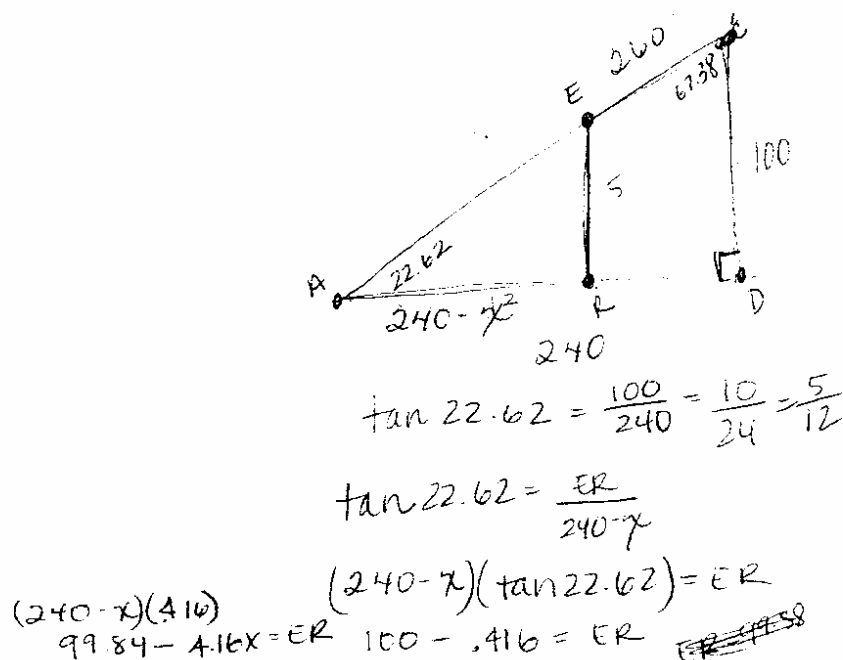 260
E
67.38
5
100
22.62
A
R
D
240 - x²
240
tan 22.62 = 100/240 = 10/24 = 5/12
tan 22.62 = ER/240-x
(240-x)(tan 22.62) = ER
(240-x)(.416)
99.84 - .416x = ER
100 - .416 = ER